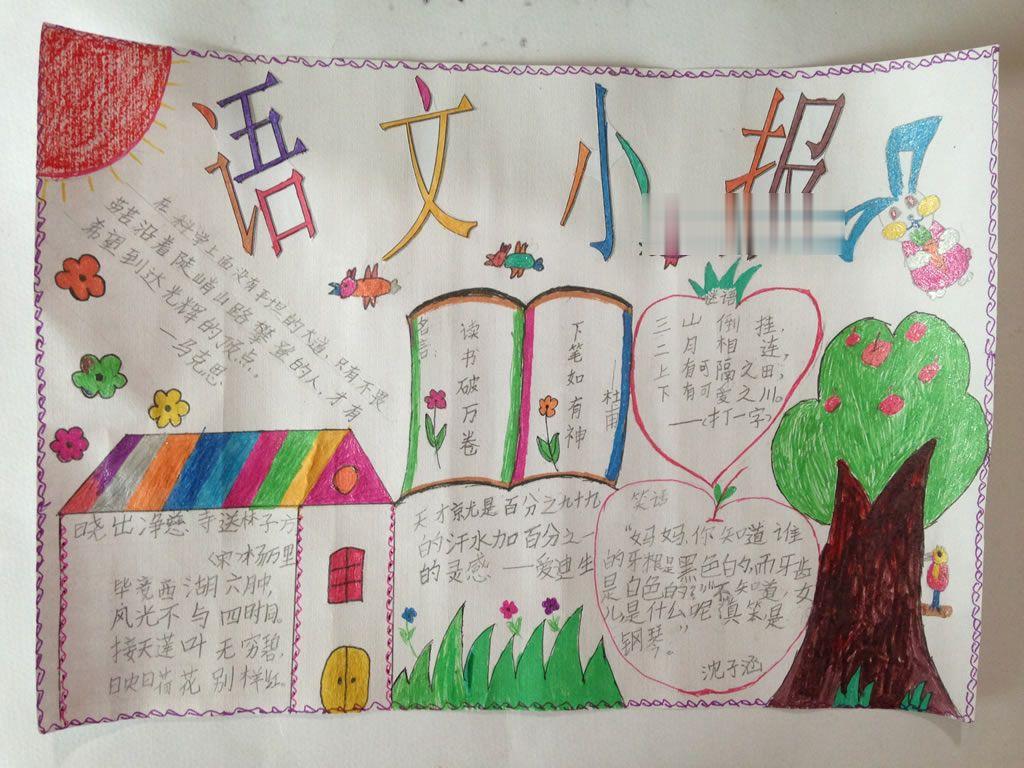 语文小报
在科学上面没有平坦的大道,只有不畏
劳苦沿着陡峭山路攀登的人,才有
希望到达光辉的顶点。
—马克思
名言:
读书破万卷
下笔如有神
杜甫
谜语
三山倒挂,
二月相连,
上有可隔之田;
下有可爱之川。
——(打一字)
晓出净慈寺送林子方
《宋》杨万里
毕竟西湖六月中,
风光不与四时同。
接天莲叶无穷碧,
映日荷花别样红。
天才就是百分之九十九
的汗水加百分之一
的灵感 —爱迪生
笑话
"妈妈,你知道谁
的牙根是黑色的,而牙齿
是白色的?"不知道,女
儿是什么呢"真笨是
钢琴。"
沈子涵